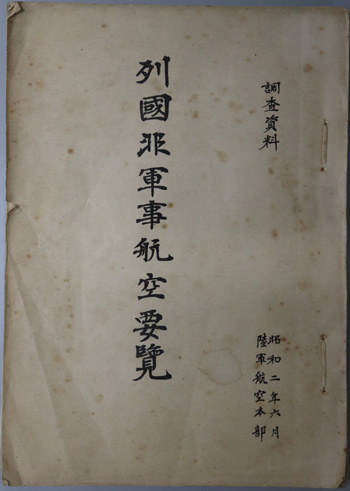 調査資料
昭和二年六月
陸軍航空本部
列國非軍事航空要覽